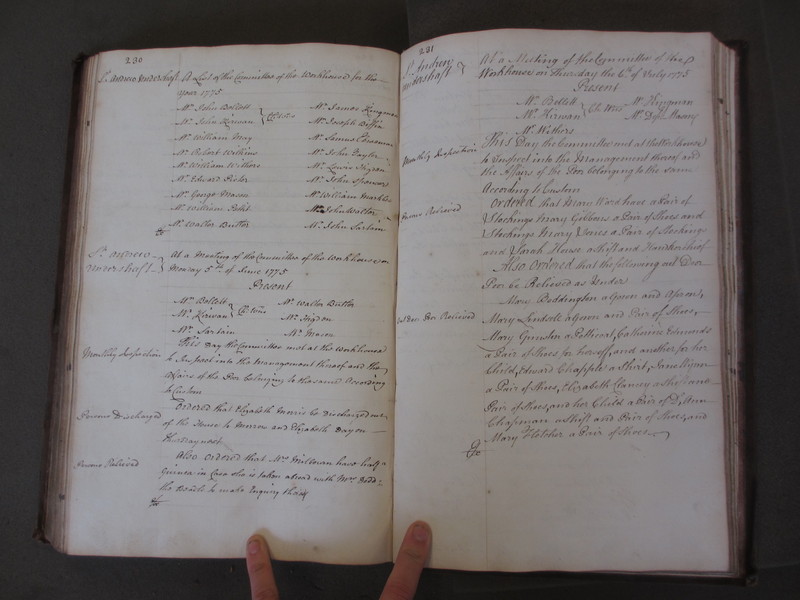 230
St. Andrew Undershaft
A List of the Committee of the Workhouse for the
Year 1775
Mr. John Bellett
Mr. John Kirwan
Ch: Wns
Mr. William May
Mr. Robert Wilkins
Mr. William Withers
Mr. Edward
Mr. George Macon
Mr. William Pettit
Mr. Walter Butler
Mr. James Kingman
Mr. Joseph
Mr. Samuel
Mr. John Taylor
Mr. Lewis
Mr. John Spencer
Mr. William
Mr. John Walter
Mr. John Sartain
St. Andrew
Undershaft
At a Meeting of the Committee of the Workhouse on
Monday 5th. of June 1775
Present
Mr. Bellett
Mr. Kirwan
Ch: Wns
Mr. Sartain
Mr. Walter Butler
Mr. Higdon
Mr. Macon
Monthly Inspection
This Day the Committee met at the Workhouse
to Inspect into the Management thereof and the
Affairs of the Poor belonging to the same According
to Custom
Persons Discharged
Ordered that Elizabeth Morris be Discharged out
of the House to Morrow and Elizabeth Day on
Thursday next
Persons Relieved
Also Ordered that Mrs. Millwan have half a
Guinea in Case she is taken abroad with Mrs.
the to make Enquiry
231
St. Andrew
Undershaft
At a Meeting of the Committee of the
Workhouse on Thursday the 6th. of July 1775
Present
Mr. Bellett
Mr. Kirwan
Ch: Wns
Mr. Withers
Mr. Kingman
Mr. Dep.
Monthly Inspection
This Day the Committee met at the Workhouse
to Inspect into the Management thereof and
the Affairs of the Poor belonging to the same
According to Custom
Persons Relieved
Ordered that Mary Word have a Pair of
Stockings Mary Gibbons a Pair of Shoes and
Stockings Mary Jones a Pair of Stockings
and Sarah House a Shift and Handkerchief
Also Ordered that the following out Door
Poor be Relieved as Under
Mary Boddington a Gown and Apron,
out Door Poor Relieved
Mary Lindsell a Gown and Pair of Shoes,
Mary Grinston a Petticoat, Catherine Edmonds
a Pair of Shoes for herself, and another for her
Child, Edward Chapple a Shirt, Jane Wynn
a Pair of Shoes, Elizabeth Clancy a Shift and
Pair of Shoes, and her Child a Pair of Do. Ann
Chapman a Shift and Pair of Shoes, and
Mary Fletcher a Pair of Shoes